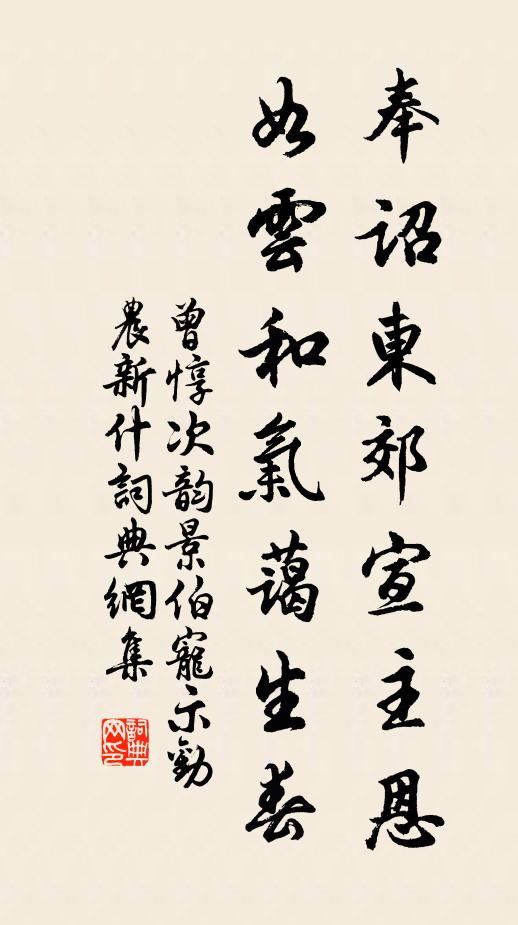 奉詔東郊宣主恩
如雲和氣藹生春
曾惇次韵景伯寵示勸
農新什詞典網集
詞典網印